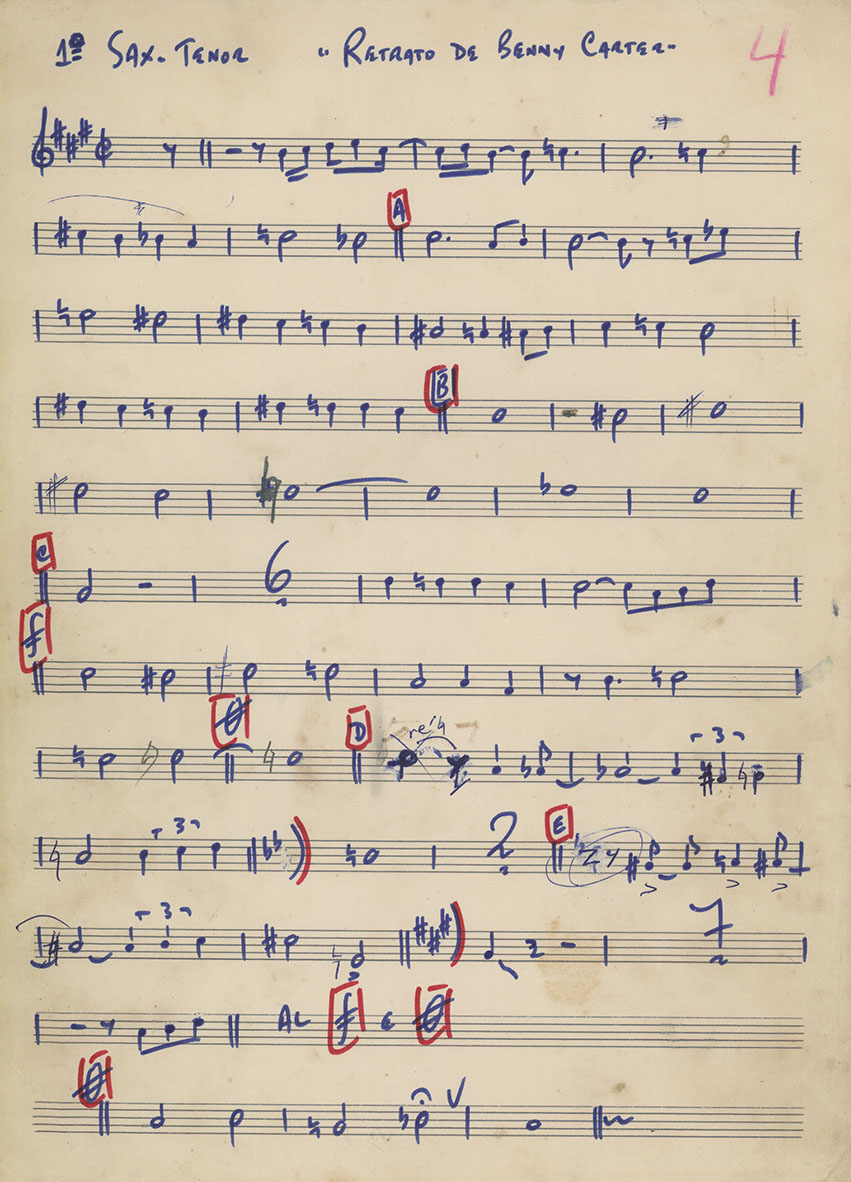 1º SAX. TENOR "RETRATO DE BENNY CARTER"
4
A
B
C
6
D
re
3
3
2
E
3
7
AL E